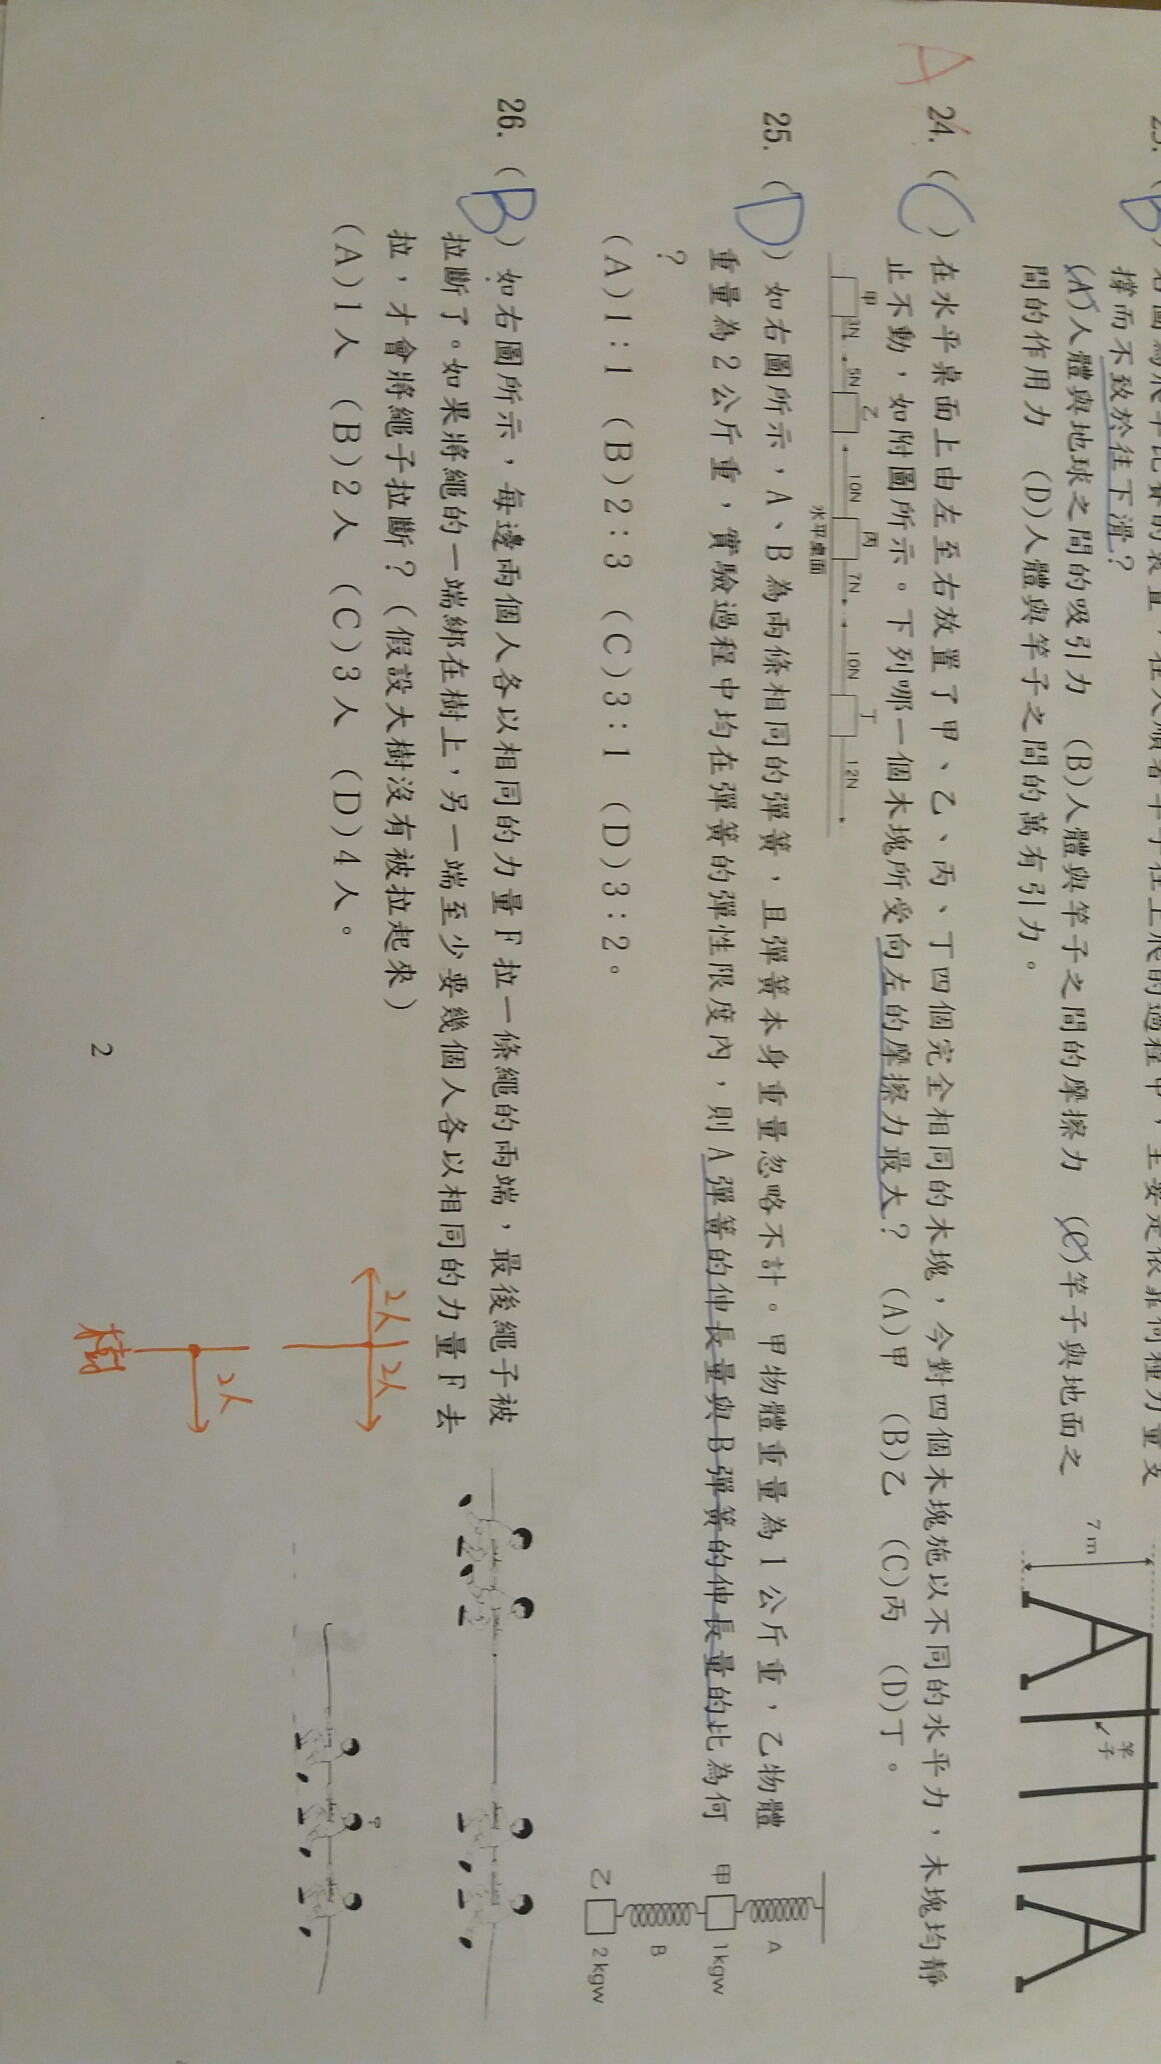 撐而不致於往下滑？
(A)人體與地球之間的吸引力 (B)人體與竿子之間的摩擦力 (C)竿子與地面之
間的作用力 (D)人體與竿子之間的萬有引力。
7 m
竿子
A
24. (C) 在水平桌面上由左至右放置了甲、乙、丙、丁四個完全相同的木塊，今對四個木塊施以不同的水平力，木塊均靜
止不動，如附圖所示。下列哪一個木塊所受向左的摩擦力最大？ (A)甲 (B)乙 (C)丙 (D)丁。
甲 3N 5N 乙 10N 丙 7N 10N 丁 12N
水平桌面
25. (D) 如右圖所示，A、B為兩條相同的彈簧，且彈簧本身重量忽略不計。甲物體重量為1公斤重，乙物體
重量為2公斤重，實驗過程中均在彈簧的彈性限度內，則A彈簧的伸長量與B彈簧的伸長量的比為何
？
(A)1：1 (B)2：3 (C)3：1 (D)3：2。
A
甲 1kgw
B
乙 2kgw
26. (B) 如右圖所示，每邊兩個人各以相同的力量F拉一條繩的兩端，最後繩子被
拉斷了。如果將繩的一端綁在樹上，另一端至少要幾個人各以相同的力量F去
拉，才會將繩子拉斷？(假設大樹沒有被拉起來)
(A)1人 (B)2人 (C)3人 (D)4人。
2人 2人
2人
樹
2